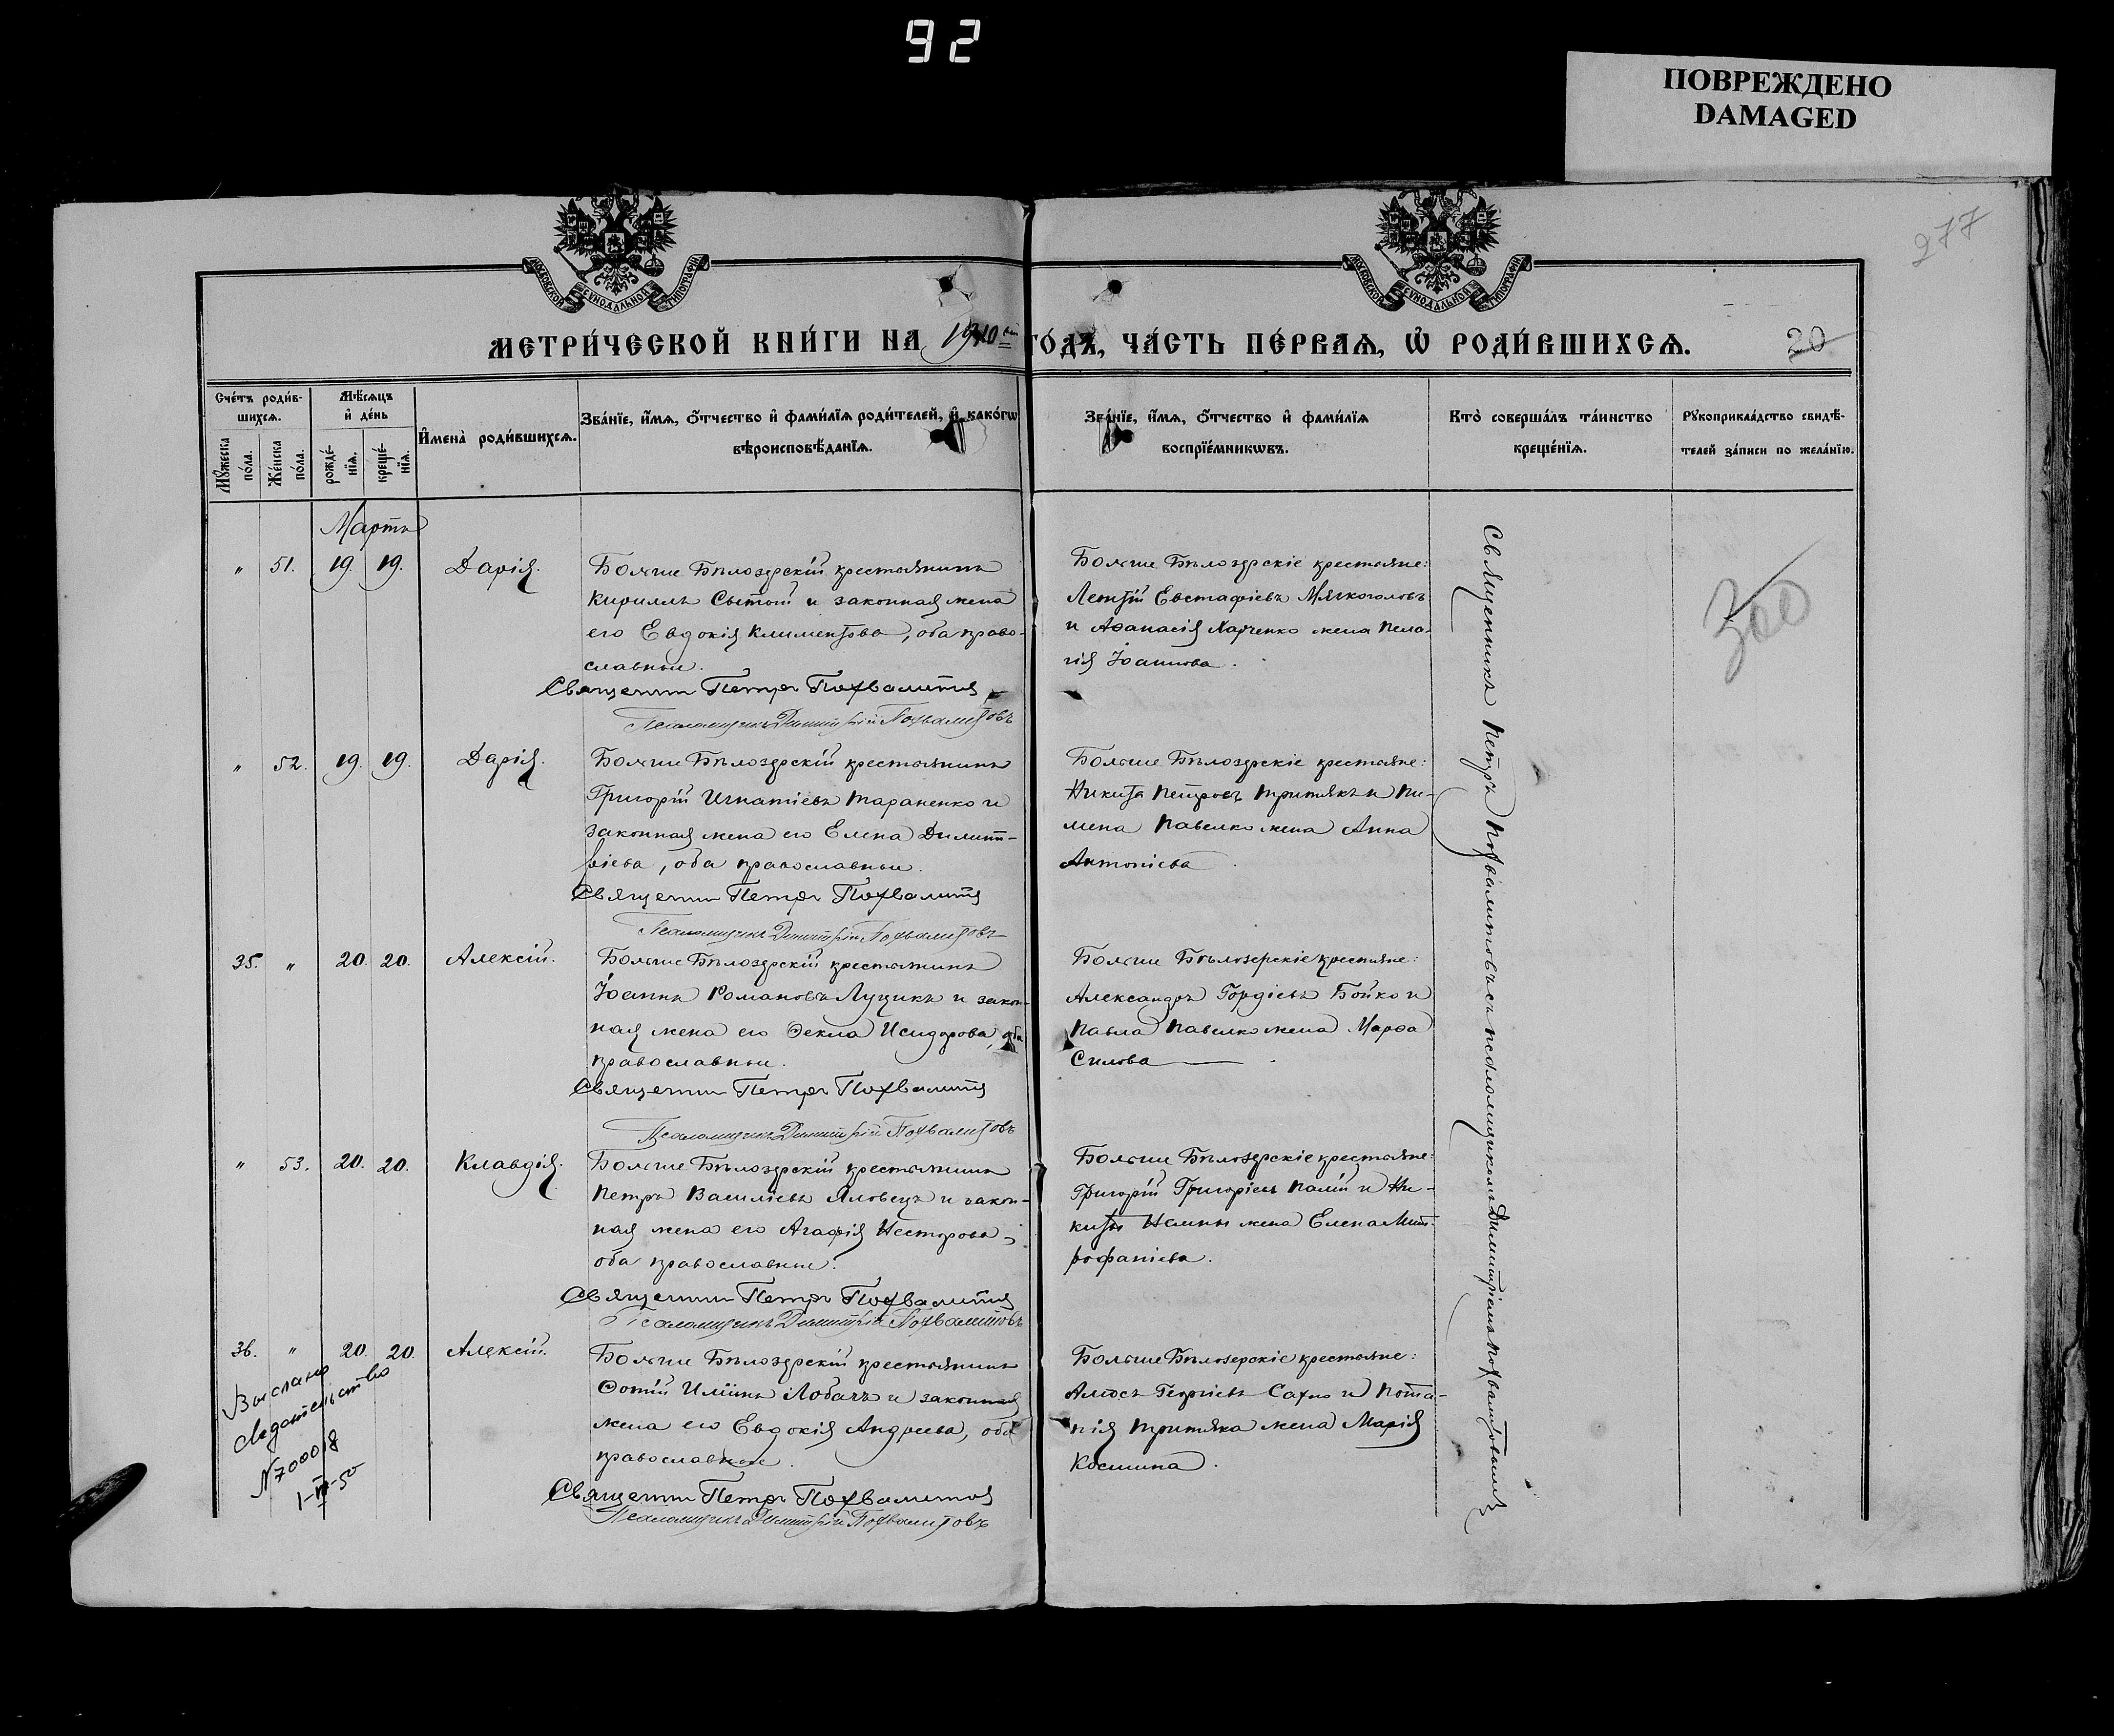 92
ПОВРЕЖДЕНО
DAMAGED
277
МОСКОВСКОЙ СѴНОДАЛЬНОЙ ТИПОГРАФІИ
МОСКОВСКОЙ СѴНОДАЛЬНОЙ ТИПОГРАФІИ
МЕТРИ́ЧЕСКОЙ КНИ́ГИ НА 1910 ГО́ДЪ, ЧА́СТЬ ПЕ́РВАѦ, Ѡ РОДИ́ВШИХСѦ.
20
Сче́тъ роди́в-
шихсѧ.
Мꙋ́жеска по́ла.
Же́нска по́ла.
Мѣ́сѧцъ
и҆ де́нь
рожде́-
нїѧ.
креще́-
нїѧ.
И҆мена̀ роди́вшихсѧ.
Зва́нїе, и҆́мѧ, ѻ҆́тчество и҆ фами́лїѧ роди́телей, и҆ како́гѡ
вѣроисповѣ́данїѧ.
Зва́нїе, и҆́мѧ, ѻ҆́тчество и҆ фами́лїѧ
воспрїе́мникѡвъ.
Кто̀ соверша́лъ та́инство
креще́нїѧ.
Рꙋкоприкла́дство свидѣ́-
телей за́писи по жела́нїю.
Мартъ
" 51. 19. 19. Дарія.
Больше Бѣлозерскій крестьянинъ
Кириллъ Сытый и законная жена
его Евдокія Климентова, оба право-
славные.
Священни Петръ Похвалитовъ
Псаломщикъ Димитрій Похвалитовъ
Больше Бѣлозерскіе крестьяне:
Леонтій Евстафіевъ Мягкоголовъ
и Аѳанасія Харченко жена Пела-
гія Іоаннова.
" 52. 19. 19. Дарія.
Больше Бѣлозерскій крестьянинъ
Григорій Игнатіевъ Тараненко и
законная жена его Елена Димит-
ріева, оба православные.
Священни Петръ Похвалитовъ
Псаломщикъ Димитрій Похвалитовъ
Больше Бѣлозерскіе крестьяне:
Никита Петровъ Притякъ и Пи-
мена Павелко жена Анна
Антоніева.
35. " 20. 20. Алексій.
Больше Бѣлозерскій крестьянинъ
Іоаннъ Романовъ Луцикъ и закон-
ная жена его Ѳекла Исидорова, оба
православные.
Священни Петръ Похвалитовъ
Псаломщикъ Димитрій Похвалитовъ
Больше Бѣлозерскіе крестьяне:
Александръ Гордіевъ Бойко и
Павла Павелко жена Марѳа
Силова
" 53. 20. 20. Клавдія.
Больше Бѣлозерскій крестьянинъ
Петръ Василіевъ Яловецъ и закон-
ная жена его Агафія Несторова,
оба православные.
Священни Петръ Похвалитовъ
Псаломщикъ Димитрій Похвалитовъ
Больше Бѣлозерскіе крестьяне:
Григорій Григоріевъ Палій и Ни-
киты жена Елена Мит-
рофаніева.
36. " 20. 20. Алексій.
Больше Бѣлозерскій крестьянинъ
Ѳотій Иліинъ Лобачъ и законная
жена его Евдокія Андреева, оба
православные.
Священни Петръ Похвалитовъ
Псаломщикъ Димитрій Похвалитовъ
Больше Бѣлозерскіе крестьяне:
Амосъ Георгіевъ Сахно и Пота-
пія Притяка жена Марія
Космина.
Выслано
свидетельство
N 700018
1-III-50
Священникъ Петръ Похвалитовъ съ псаломщикомъ Димитріемъ Похвалитовымъ